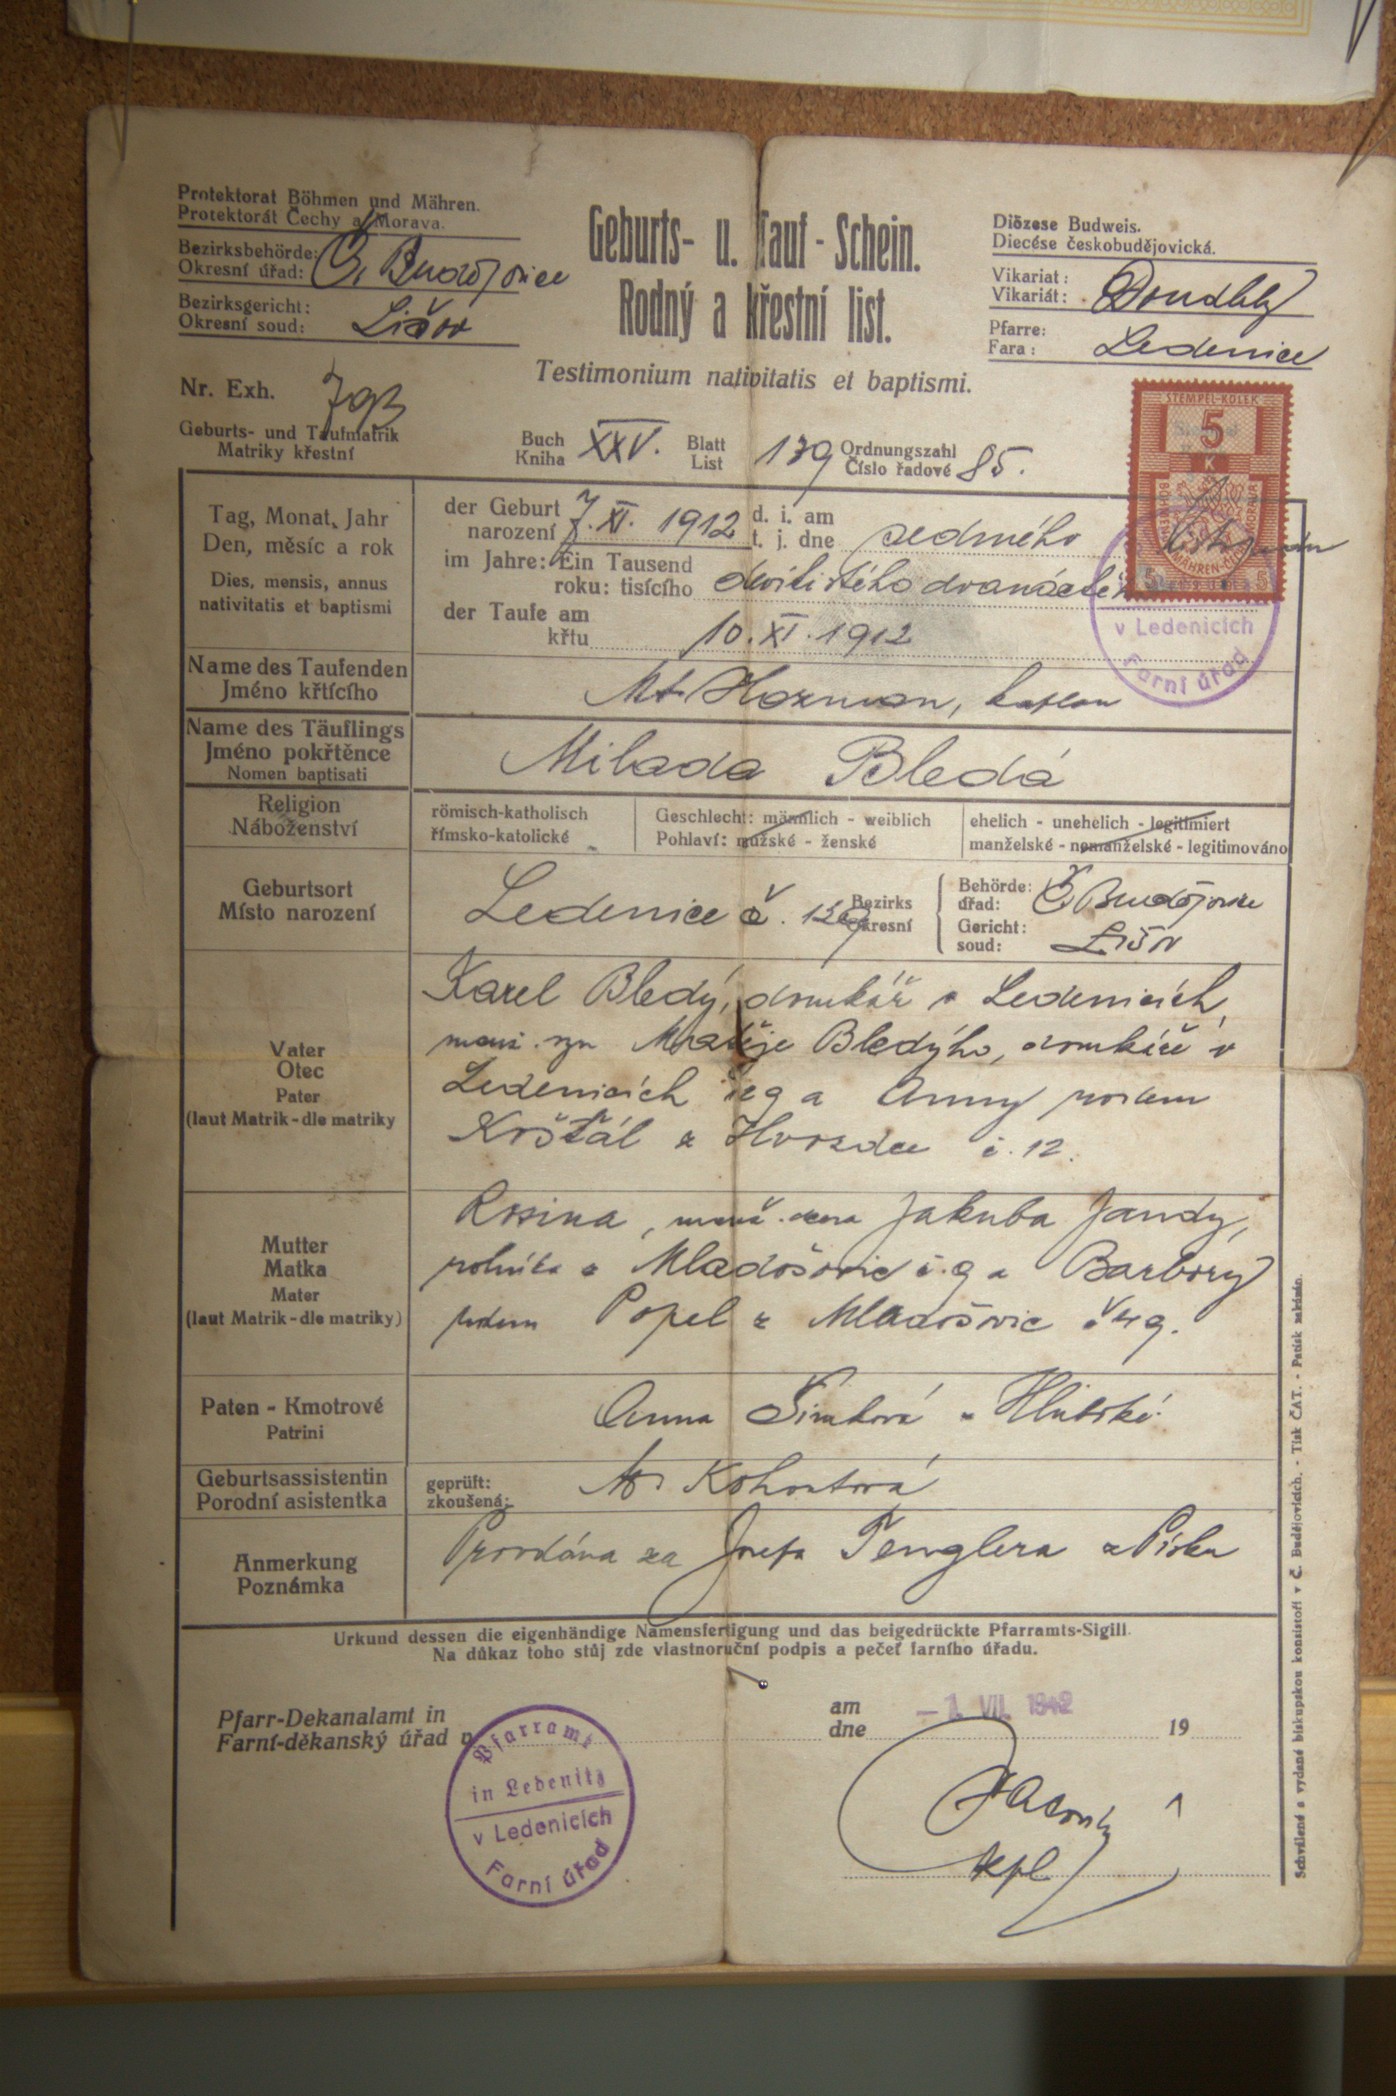 Protektorat Böhmen und Mähren.
Protektorát Čechy a Morava.
Bezirksbehörde:
Okresní úřad: Č. Budějovice
Bezirksgericht:
Okresní soud: Lišov
Geburts- u. Tauf-Schein.
Rodný a křestní list.
Testimonium nativitatis et baptismi.
Diözese Budweis.
Diecése českobudějovická.
Vikariat:
Vikariát: Doudleby
Pfarre:
Fara: Ledenice
Nr. Exh. 793
Geburts- und Taufmatrik
Matriky křestní
Buch
Kniha XXV.
Blatt
List 139
Ordnungszahl
Číslo řadové 85.
STEMPEL-KOLEK
5
K
5 5
Tag, Monat, Jahr
Den, měsíc a rok
Dies, mensis, annus
nativitatis et baptismi
der Geburt
narození 7. XI. 1912
d. i. am
t. j. dne sedmého
im Jahre: Ein Tausend
roku: tisícího
der Taufe am
křtu 10. XI. 1912
v Ledenicích
Farní úřad
Name des Taufenden
Jméno křtícího
Horman, kaplan
Name des Täuflings
Jméno pokřtěnce
Nomen baptisati
Milada Bledá
Religion
Náboženství
römisch-katholisch
římsko-katolické
Geschlecht: männlich - weiblich
Pohlaví: mužské - ženské
ehelich - unehelich - legitimiert
manželské - nemanželské - legitimováno
Geburtsort
Místo narození
Ledenice č.
Bezirks
Okresní
Behörde:
úřad: Č. Budějovice
Gericht:
soud: Lišov
Vater
Otec
Pater
(laut Matrik - dle matriky
Karel Bledý, domkář v Ledenicích,
manž. syn Matěje Bledýho, domkáře v
Ledenicích a Anny rodem
Krštál z Hvozdce č. 12.
Mutter
Matka
Mater
(laut Matrik - dle matriky)
Rosina, manž. dcera Jakuba Jandy,
rolníka z Mladošovic č. 9 a Barbory
rodem Popel z Mladošovic č. 49.
Paten - Kmotrové
Patrini
Anna Šimková
Geburtsassistentin
Porodní asistentka
geprüft:
zkoušená: Kohoutová
Anmerkung
Poznámka
Provdána za Josefa Tenglera z Písku
Urkund dessen die eigenhändige Namensfertigung und das beigedrückte Pfarramts-Sigill.
Na důkaz toho stůj zde vlastnoruční podpis a pečeť farního úřadu.
Pfarr-Dekanalamt in
Farní-děkanský úřad v
am
dne -1. VII. 1942 19
Pfarramt
in Ledenitz
v Ledenicích
Farní úřad
kpl
Schválené a vydané biskupskou konsistoří v Č. Budějovicích. - Tisk ČAT. - Patisk zakázán.